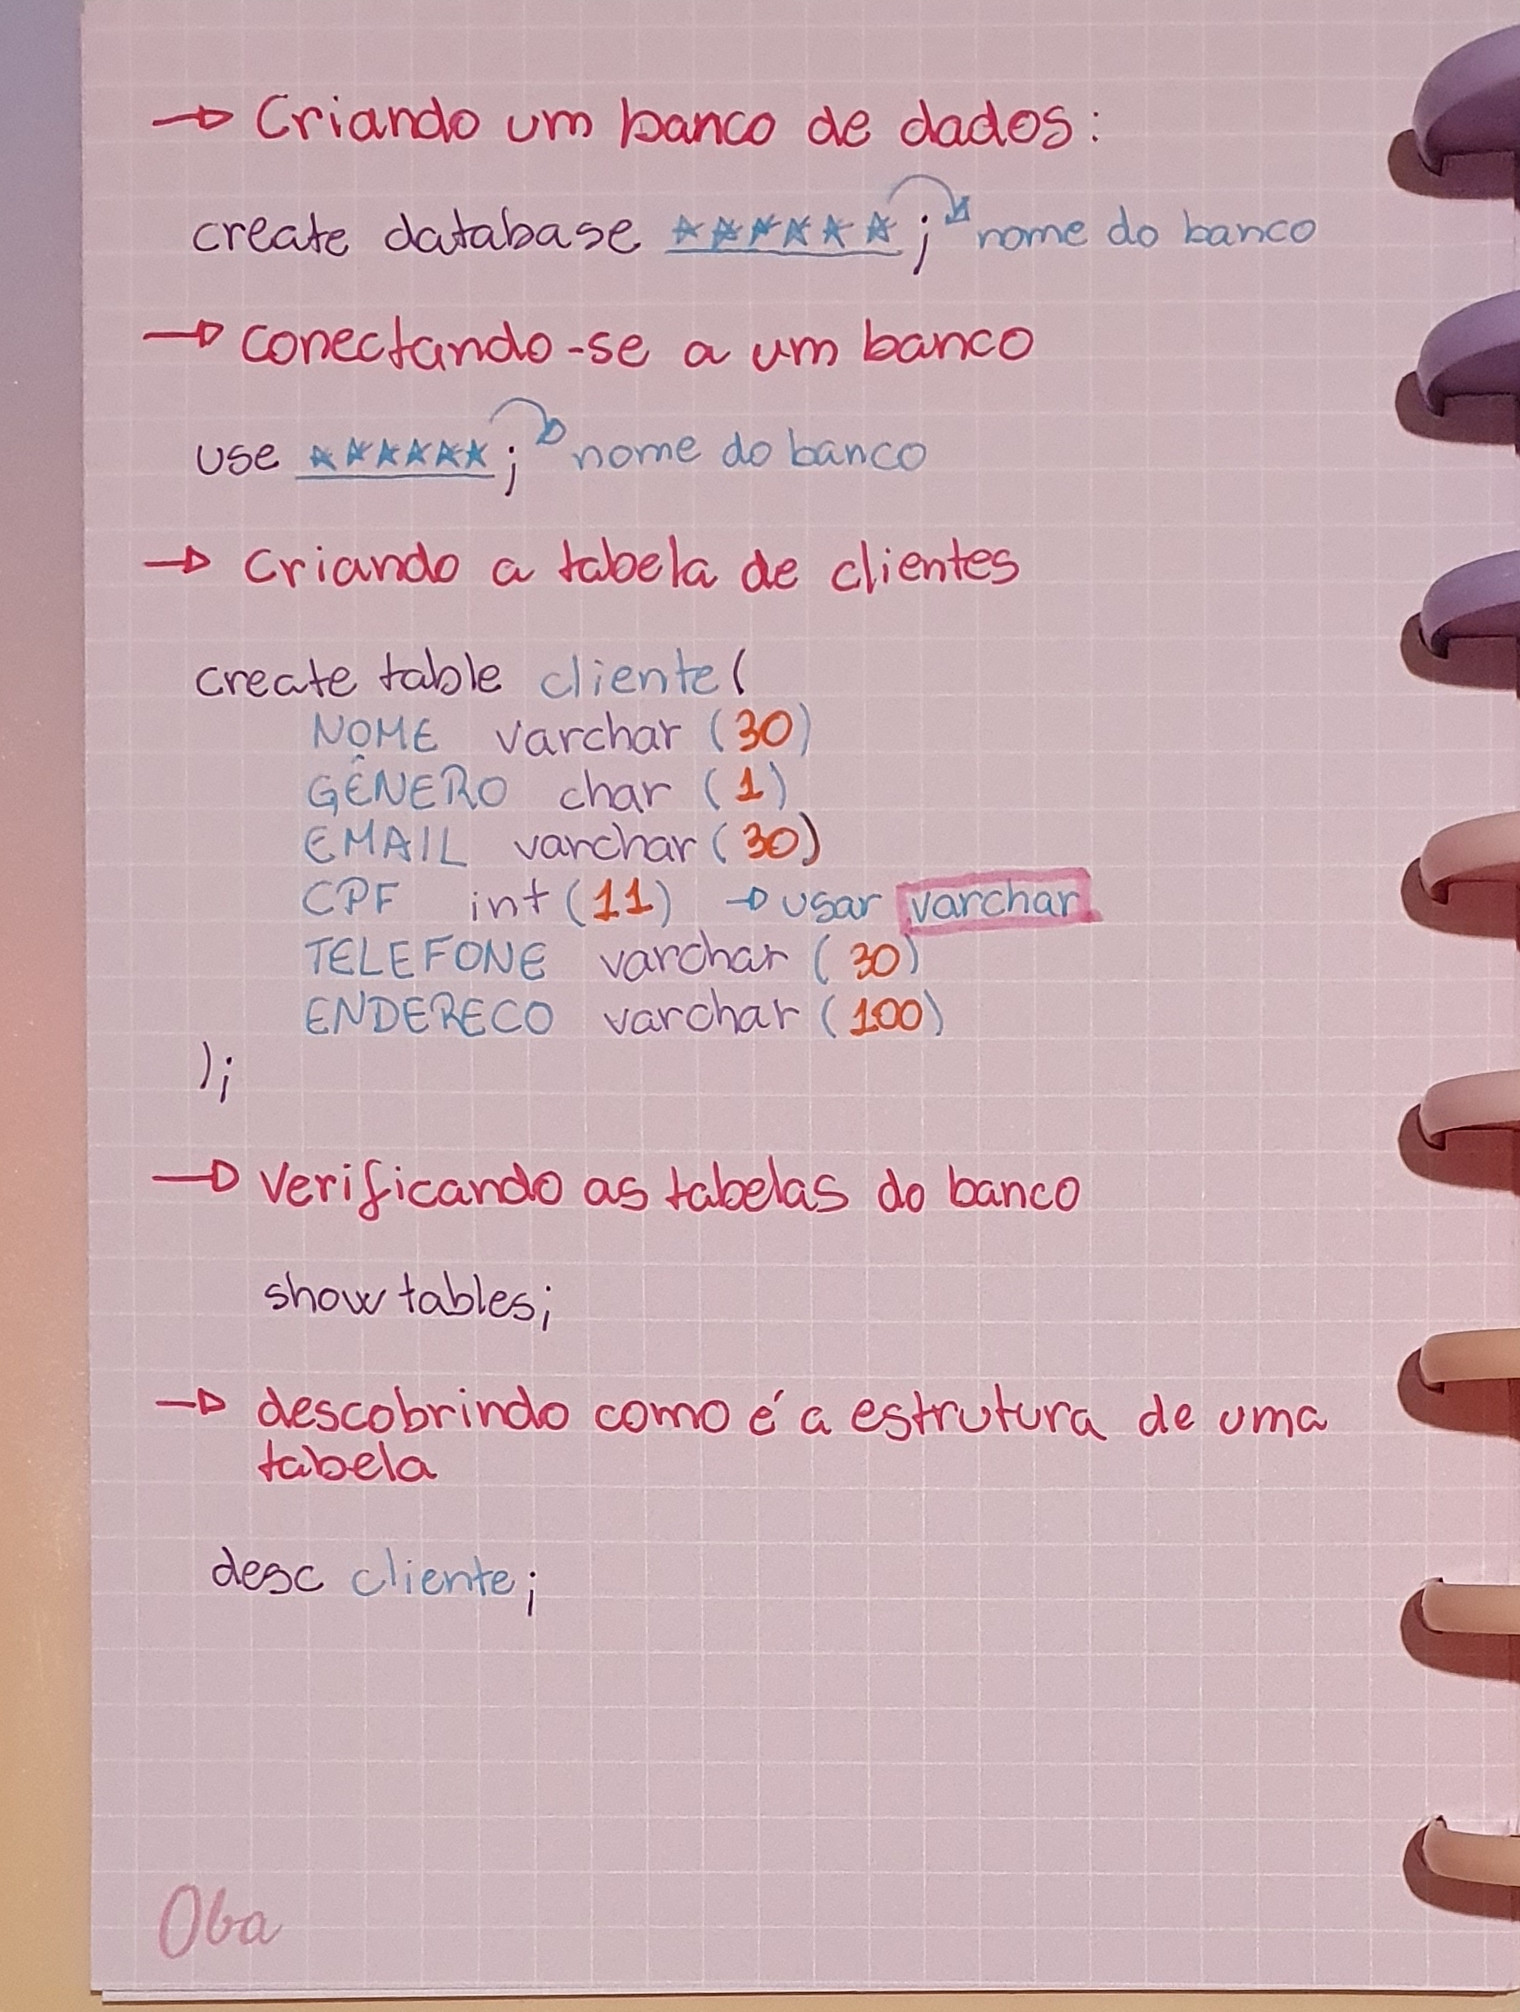 → Criando um banco de dados:
create database ****** ; nome do banco
→ conectando-se a um banco
use ****** ; nome do banco
→ criando a tabela de clientes
create table cliente(
NOME varchar (30)
GÊNERO char (1)
EMAIL varchar (30)
CPF int (11) → usar varchar
TELEFONE varchar (30)
ENDERECO varchar (100)
);
→ Verificando as tabelas do banco
show tables;
→ descobrindo como é a estrutura de uma
tabela
desc cliente;
Oba